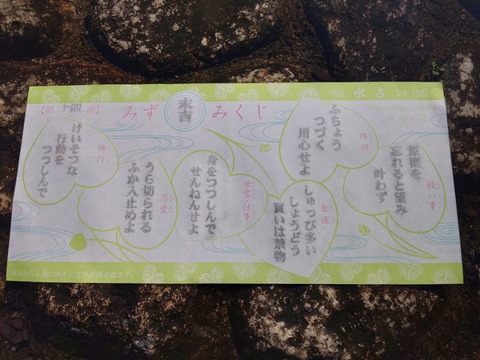 水占い
みず
末吉
みくじ
願い事
忘れると望み
叶わず
ふちょう
つづく
用心せよ
金運
しゅっぴ多い
しょうどう
買いは禁物
身をつつしんで
せんねんせよ
恋愛
うら切られる
ふか入止めよ
旅行
けいそつな
行動を
つつしんで